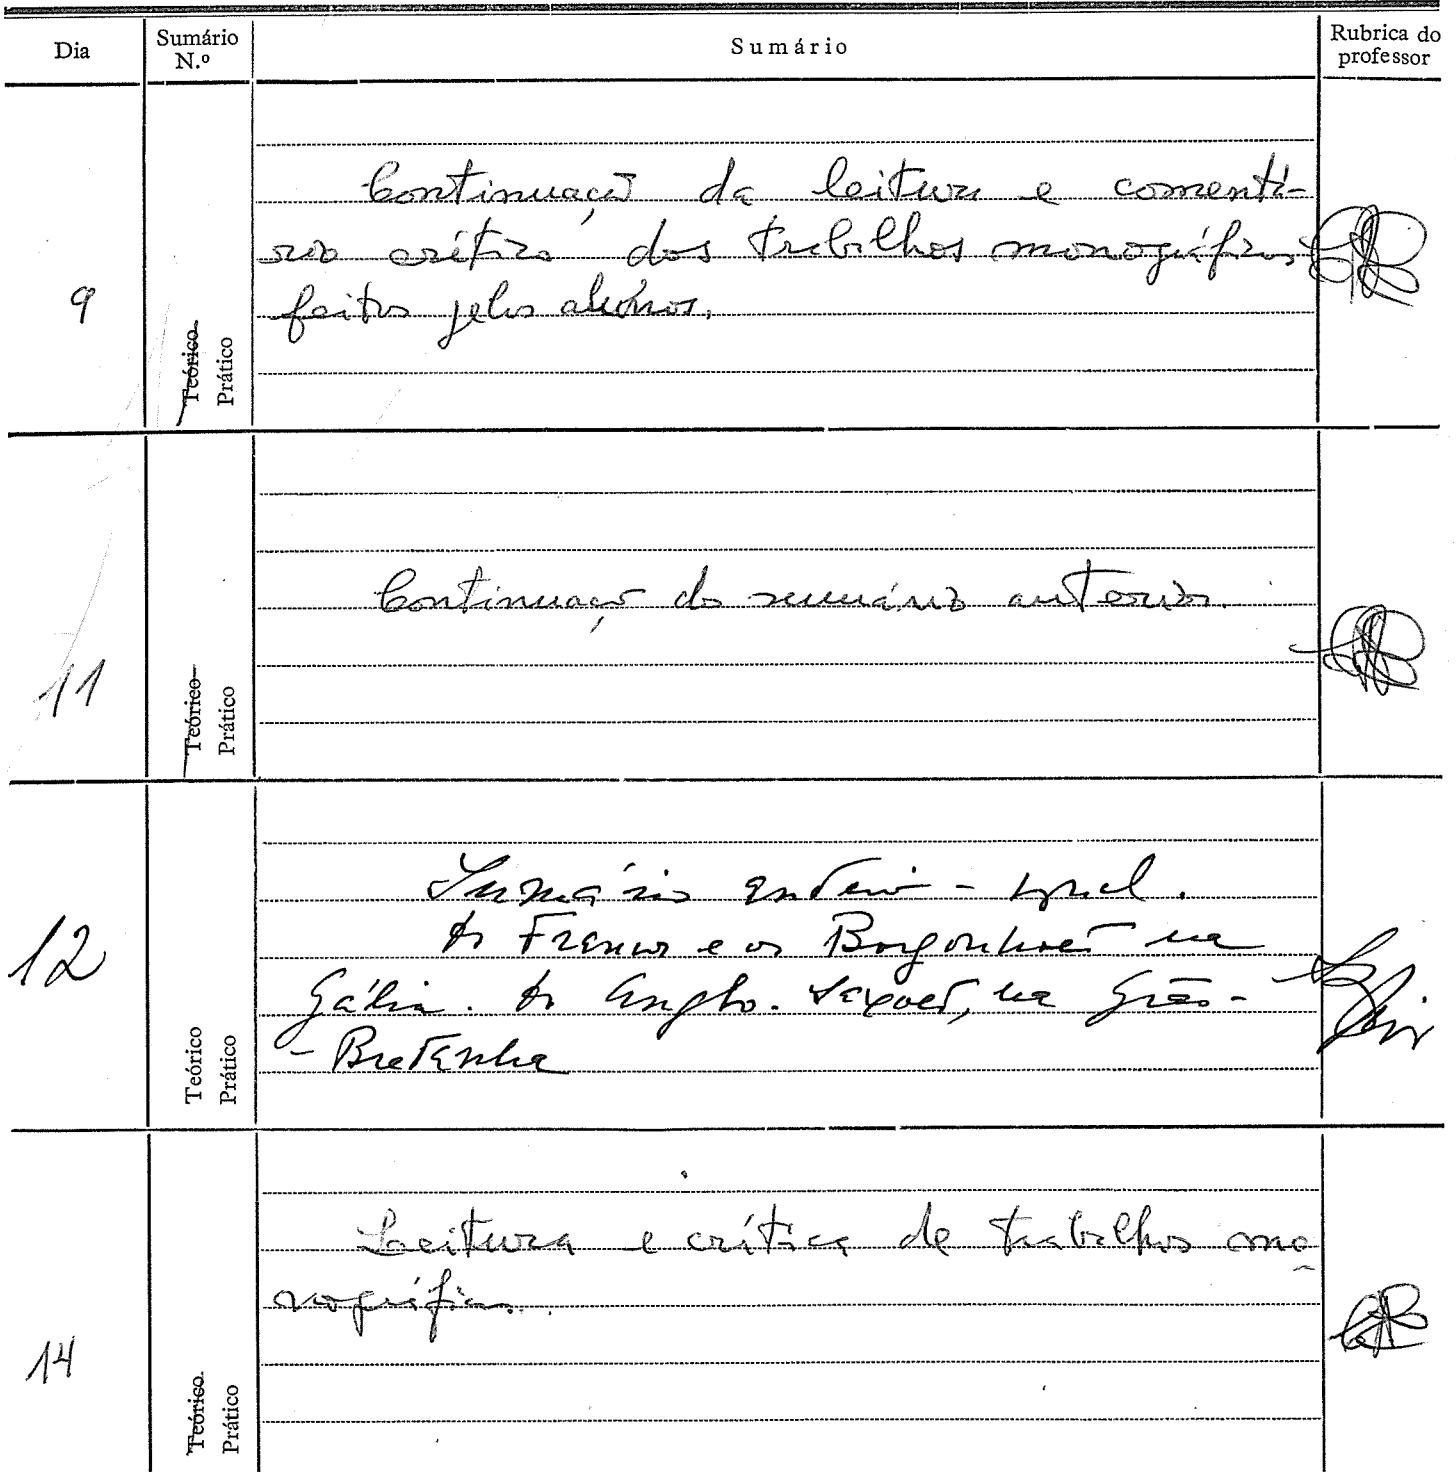 Dia
Sumário
N.º
Sumário
Rubrica do
professor
9
Teórico
Prático
Continuação da leitura e comentá-
rio crítico dos trabalhos monográficos
feitos pelos alunos.
11
Teórico
Prático
Continuação do sumário anterior.
12
Teórico
Prático
Sumário
Os Francos e os Borgonhões na
Gália. Os Anglo-Saxões, na Grão-
-Bretanha
14
Teórico
Prático
Leitura e crítica de trabalhos mo
nográficos.